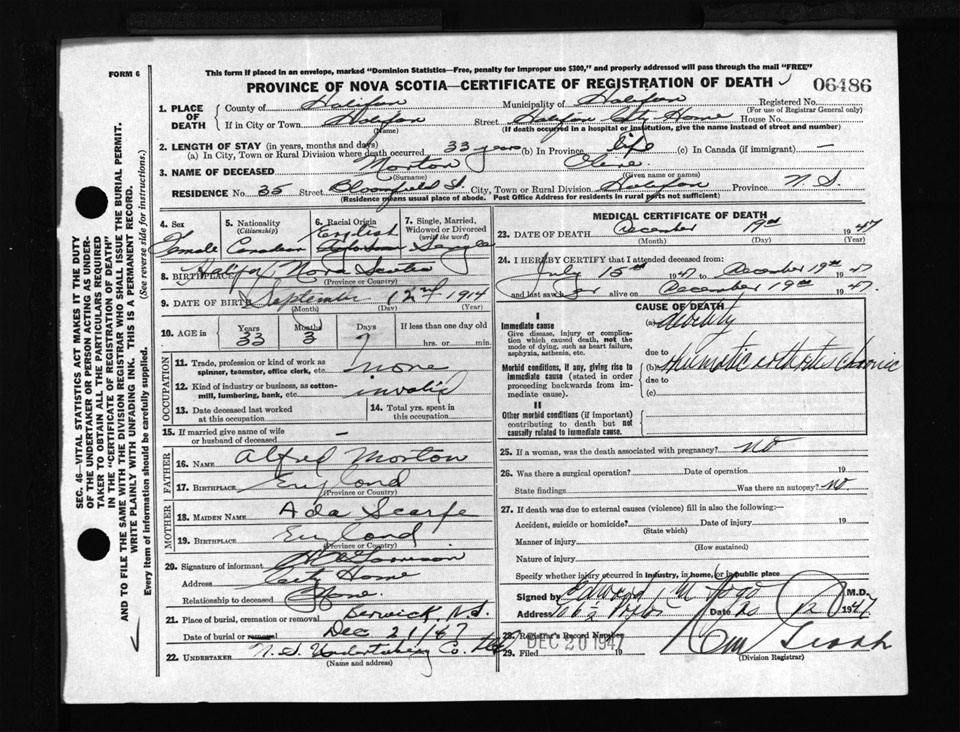 FORM 6
This form if placed in an envelope, marked "Dominion Statistics—Free, penalty for improper use $300," and properly addressed will pass through the mail "FREE"
PROVINCE OF NOVA SCOTIA—CERTIFICATE OF REGISTRATION OF DEATH
06486
1. PLACE OF DEATH
County of Halifax Municipality of Halifax Registered No.
(For use of Registrar General only)
If in City or Town Halifax Street Halifax City Home House No.
(Name) (If death occurred in a hospital or institution, give the name instead of street and number)
2. LENGTH OF STAY (in years, months and days)
(a) In City, Town or Rural Division where death occurred 33 years (b) In Province life (c) In Canada (if immigrant) —
3. NAME OF DECEASED Morton
(Surname) (Given name or names)
RESIDENCE No. 35 Street Bloomfield St. City, Town or Rural Division Halifax Province N.S.
(Residence means usual place of abode. Post Office Address for residents in rural parts not sufficient)
4. Sex Female
5. Nationality (Citizenship) Canadian
6. Racial Origin English
7. Single, Married, Widowed or Divorced (write the word) Single
8. BIRTHPLACE Halifax Nova Scotia
(Province or Country)
9. DATE OF BIRTH September 12nd 1914
(Month) (Day) (Year)
10. AGE in Years 33 Months 3 Days 7 If less than one day old hrs. or min.
OCCUPATION
11. Trade, profession or kind of work as spinner, teamster, office clerk, etc. none
12. Kind of industry or business, as cotton-mill, lumbering, bank, etc. invalid
13. Date deceased last worked at this occupation
14. Total yrs. spent in this occupation
15. If married give name of wife or husband of deceased —
FATHER
16. NAME Alfred Morton
17. BIRTHPLACE England
(Province or Country)
MOTHER
18. MAIDEN NAME Ada Scarfe
19. BIRTHPLACE England
(Province or Country)
20. Signature of informant
Address City Home
Relationship to deceased none
21. Place of burial, cremation or removal Berwick, N.S.
Date of burial or removal Dec 21/47
22. UNDERTAKER N.S. Undertaking Co. Ltd
(Name and address)
MEDICAL CERTIFICATE OF DEATH
23. DATE OF DEATH December 19th 1947
(Month) (Day) (Year)
24. I HEREBY CERTIFY that I attended deceased from:
July 15th 1947 to December 19th 1947
and last saw her alive on December 19th 1947.
CAUSE OF DEATH
I
Immediate cause
Give disease, injury or complication which caused death, not the mode of dying, such as heart failure, asphyxia, asthenia, etc.
(a) Obesity
due to
Morbid conditions, if any, giving rise to immediate cause (stated in order proceeding backwards from immediate cause).
(b) rheumatic arthritis chronic
due to
(c)
II
Other morbid conditions (if important) contributing to death but not causally related to immediate cause.
25. If a woman, was the death associated with pregnancy? no
26. Was there a surgical operation? Date of operation 19
State findings Was there an autopsy? no.
27. If death was due to external causes (violence) fill in also the following:—
Accident, suicide or homicide? Date of injury 19
(State which)
Manner of injury
(How sustained)
Nature of injury
Specify whether injury occurred in industry, in home, or in public place
Signed by Edward M.D.
Address Date 20 12 1947
28. Registrar's Record Number
29. Filed DEC 20 1947 19
(Division Registrar)
SEC. 46—VITAL STATISTICS ACT MAKES IT THE DUTY
OF THE UNDERTAKER OR PERSON ACTING AS UNDER-
TAKER TO OBTAIN ALL THE PARTICULARS REQUIRED
IN THE "CERTIFICATE OF REGISTRATION OF DEATH"
AND TO FILE THE SAME WITH THE DIVISION REGISTRAR WHO SHALL ISSUE THE BURIAL PERMIT.
WRITE PLAINLY WITH UNFADING INK. THIS IS A PERMANENT RECORD.
Every item of information should be carefully supplied. (See reverse side for instructions.)